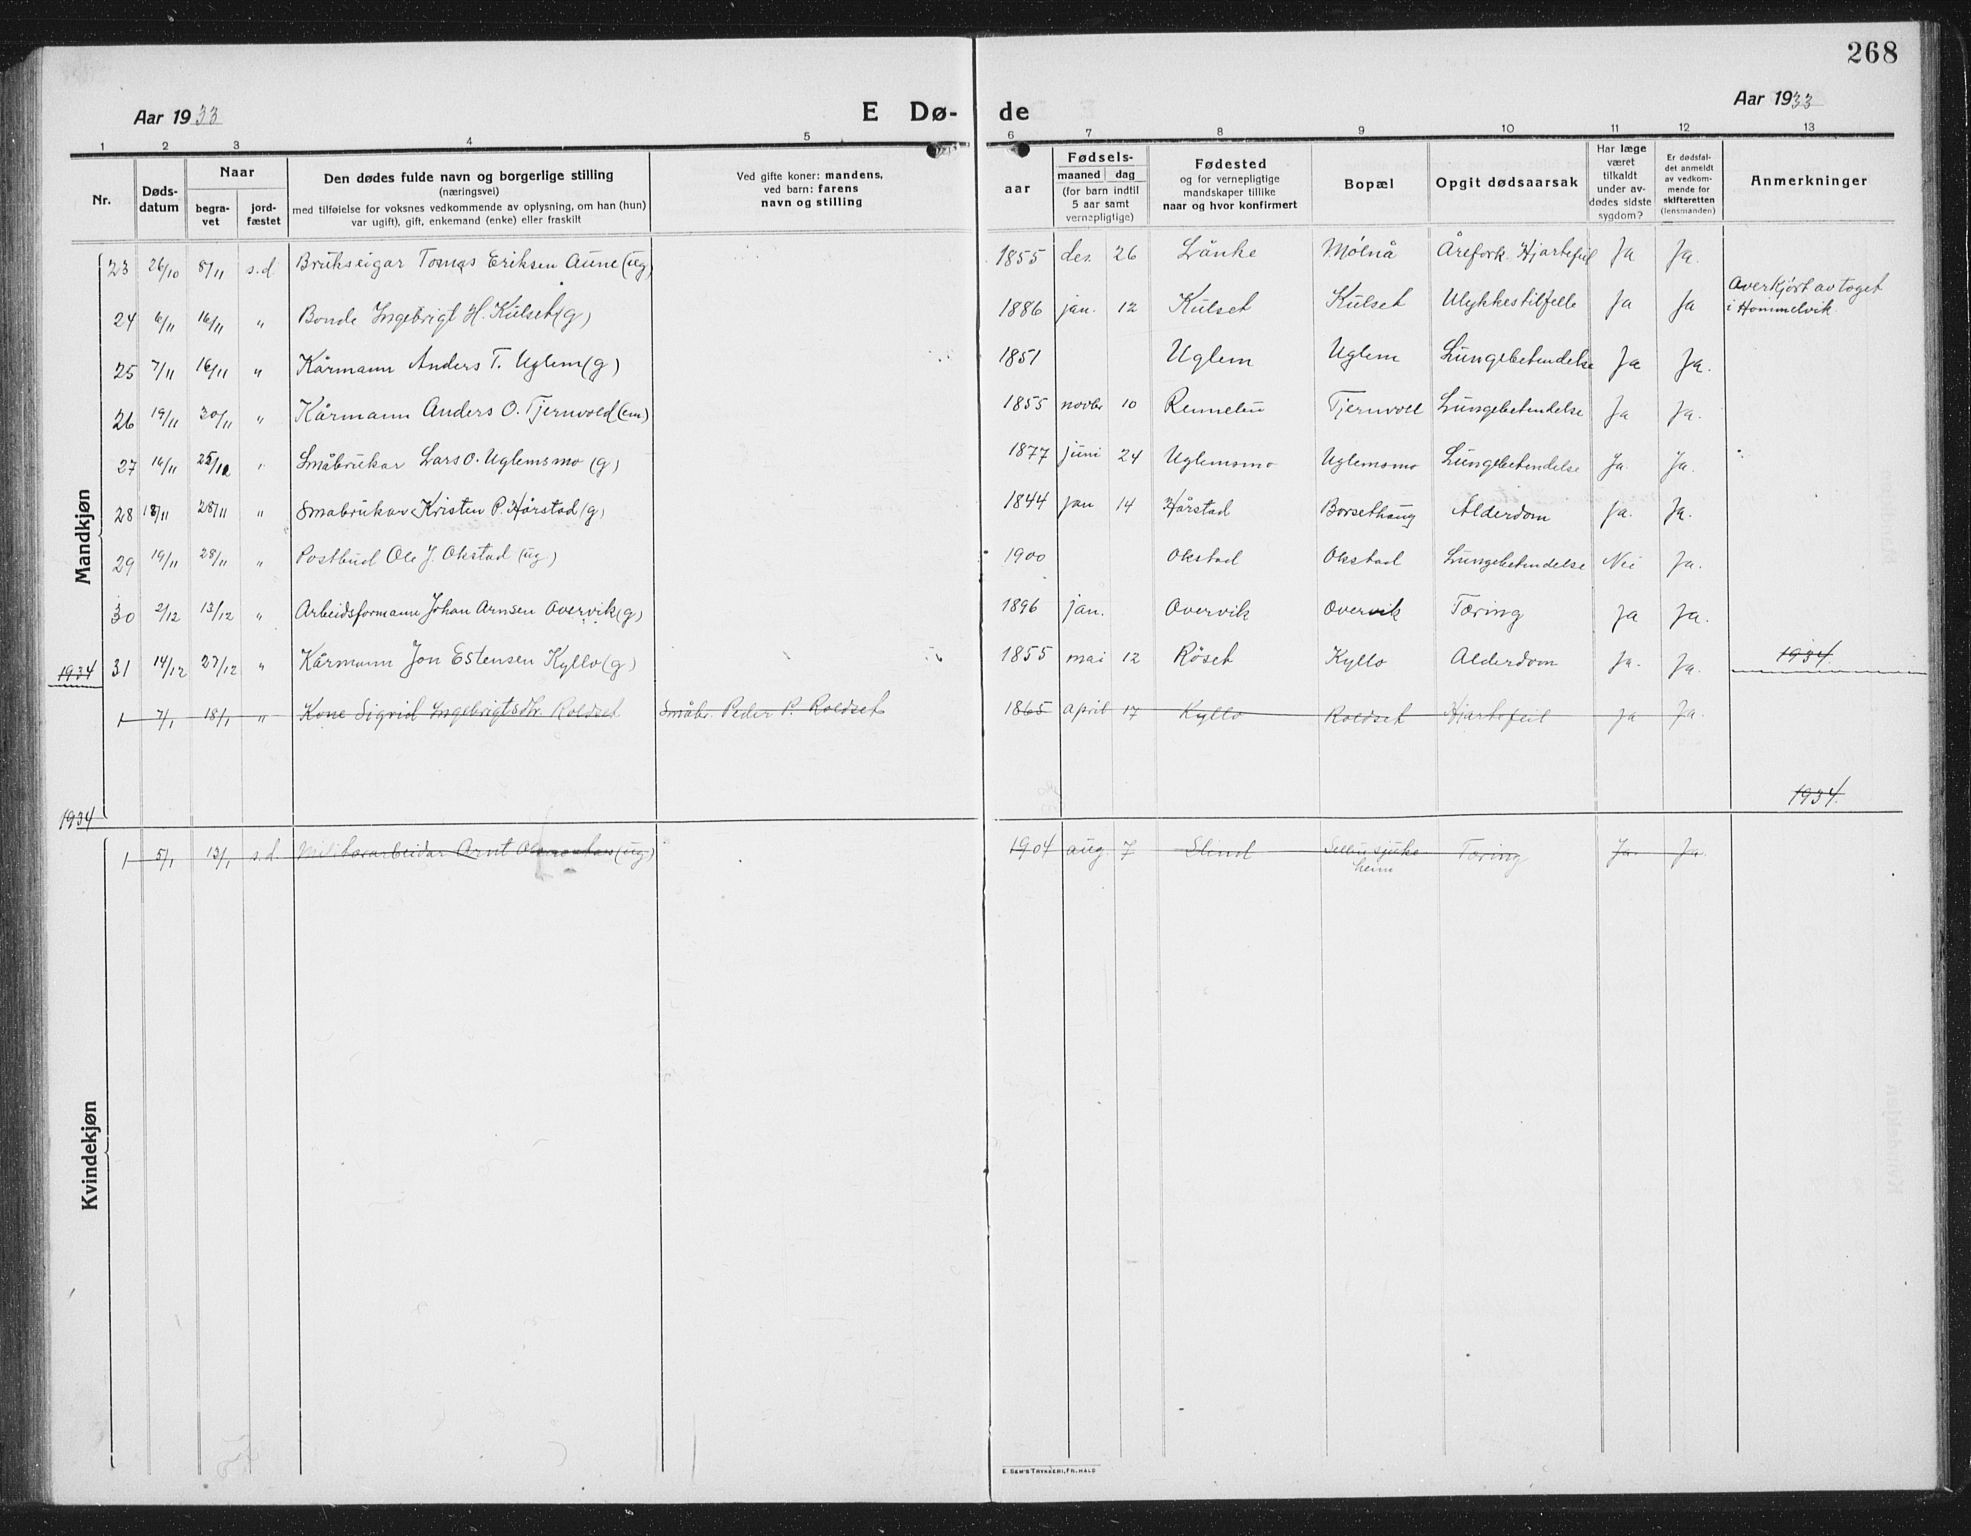 268
Aar 1933
E Dø-
de
Aar 1933
1 2 3 4 5 6 7 8 9 10 11 12 13
Nr.
Døds-
datum
Naar
begra-
vet
jord-
fæstet
Den dødes fulde navn og borgerlige stilling
(næringsvei)
med tilføielse for voksnes vedkommende av oplysning, om han (hun)
var ugift), gift, enkemand (enke) eller fraskilt
Ved gifte koner: mandens,
ved barn: farens
navn og stilling
aar
Fødsels-
maaned dag
(for barn indtil
5 aar samt
vernepligtige)
Fødested
og for vernepligtige
mandskaper tillike
naar og hvor konfirmert
Bopæl
Opgit dødsaarsak
Har læge
været
tilkaldt
under av-
dødes sidste
sygdom?
Er dødsfal-
det anmeldt
av vedkom-
mende for
skifteretten
(lensmanden)
Anmerkninger
Mandkjøn
23 26/10 8/11 s.d Brukseigar Tomas Eriksen Aune (ug) 1855 des. 26 Lånke Mølnå Årefork. Hjartefeil Ja Ja.
24 6/11 16/11 " Bonde Ingebrigt H. Kulset (g) 1886 jan. 12 Kulset Kulset Ulykkestilfelle Ja Ja Overkjört av toget
i Hommelvik.
25 7/11 16/11 " Kårmann Anders T. Uglem (g) 1851 Uglem Uglem Lungebetendelse Ja Ja.
26 19/11 30/11 " Kårmann Anders O. Tjernvold (em) 1855 novbr 10 Rennebu Tjernvoll Lungebetendelse Ja Ja.
27 16/11 " Småbrukar Lars O. Uglemsmo (g) 1877 juni 24 Uglemsmo Uglemsmo Lungebetendelse Ja. Ja.
28 18/11 28/11 " Småbrukar Kristen P. Hårstad (g) 1844 jan 14 Hårstad Borsethaug Alderdom Ja. Ja.
29 19/11 28/11 " Postbud Ole J. Okstad (ug) 1900 Okstad Okstad Lungebetendelse Nei Ja.
30 2/12 13/12 " Arbeidsformann Johan Arnsen Overvik (g) 1896 jan. Overvik Overvik Tæring Ja Ja.
1934 31 14/12 27/12 " Kårmann Jon Estensen Kyllo (g) 1855 mai 12 Röset Kyllo Alderdom Ja. Ja. 1934.
1 7/1 18/1 " Kone Sigrid Ingebrigtsdtr. Roldset Småbr. Peder P. Roldset 1865 april 17 Kyllo Roldset Hjartefeil Ja Ja.
1934 1934.
Kvindekjøn
1 5/1 13/1 s.d. Arnt (ug) 1904 aug. 7 Slind Selbu sjuke
heim Tæring Ja. Ja.
E. SEM'S TRYKKERI, FR.HALD